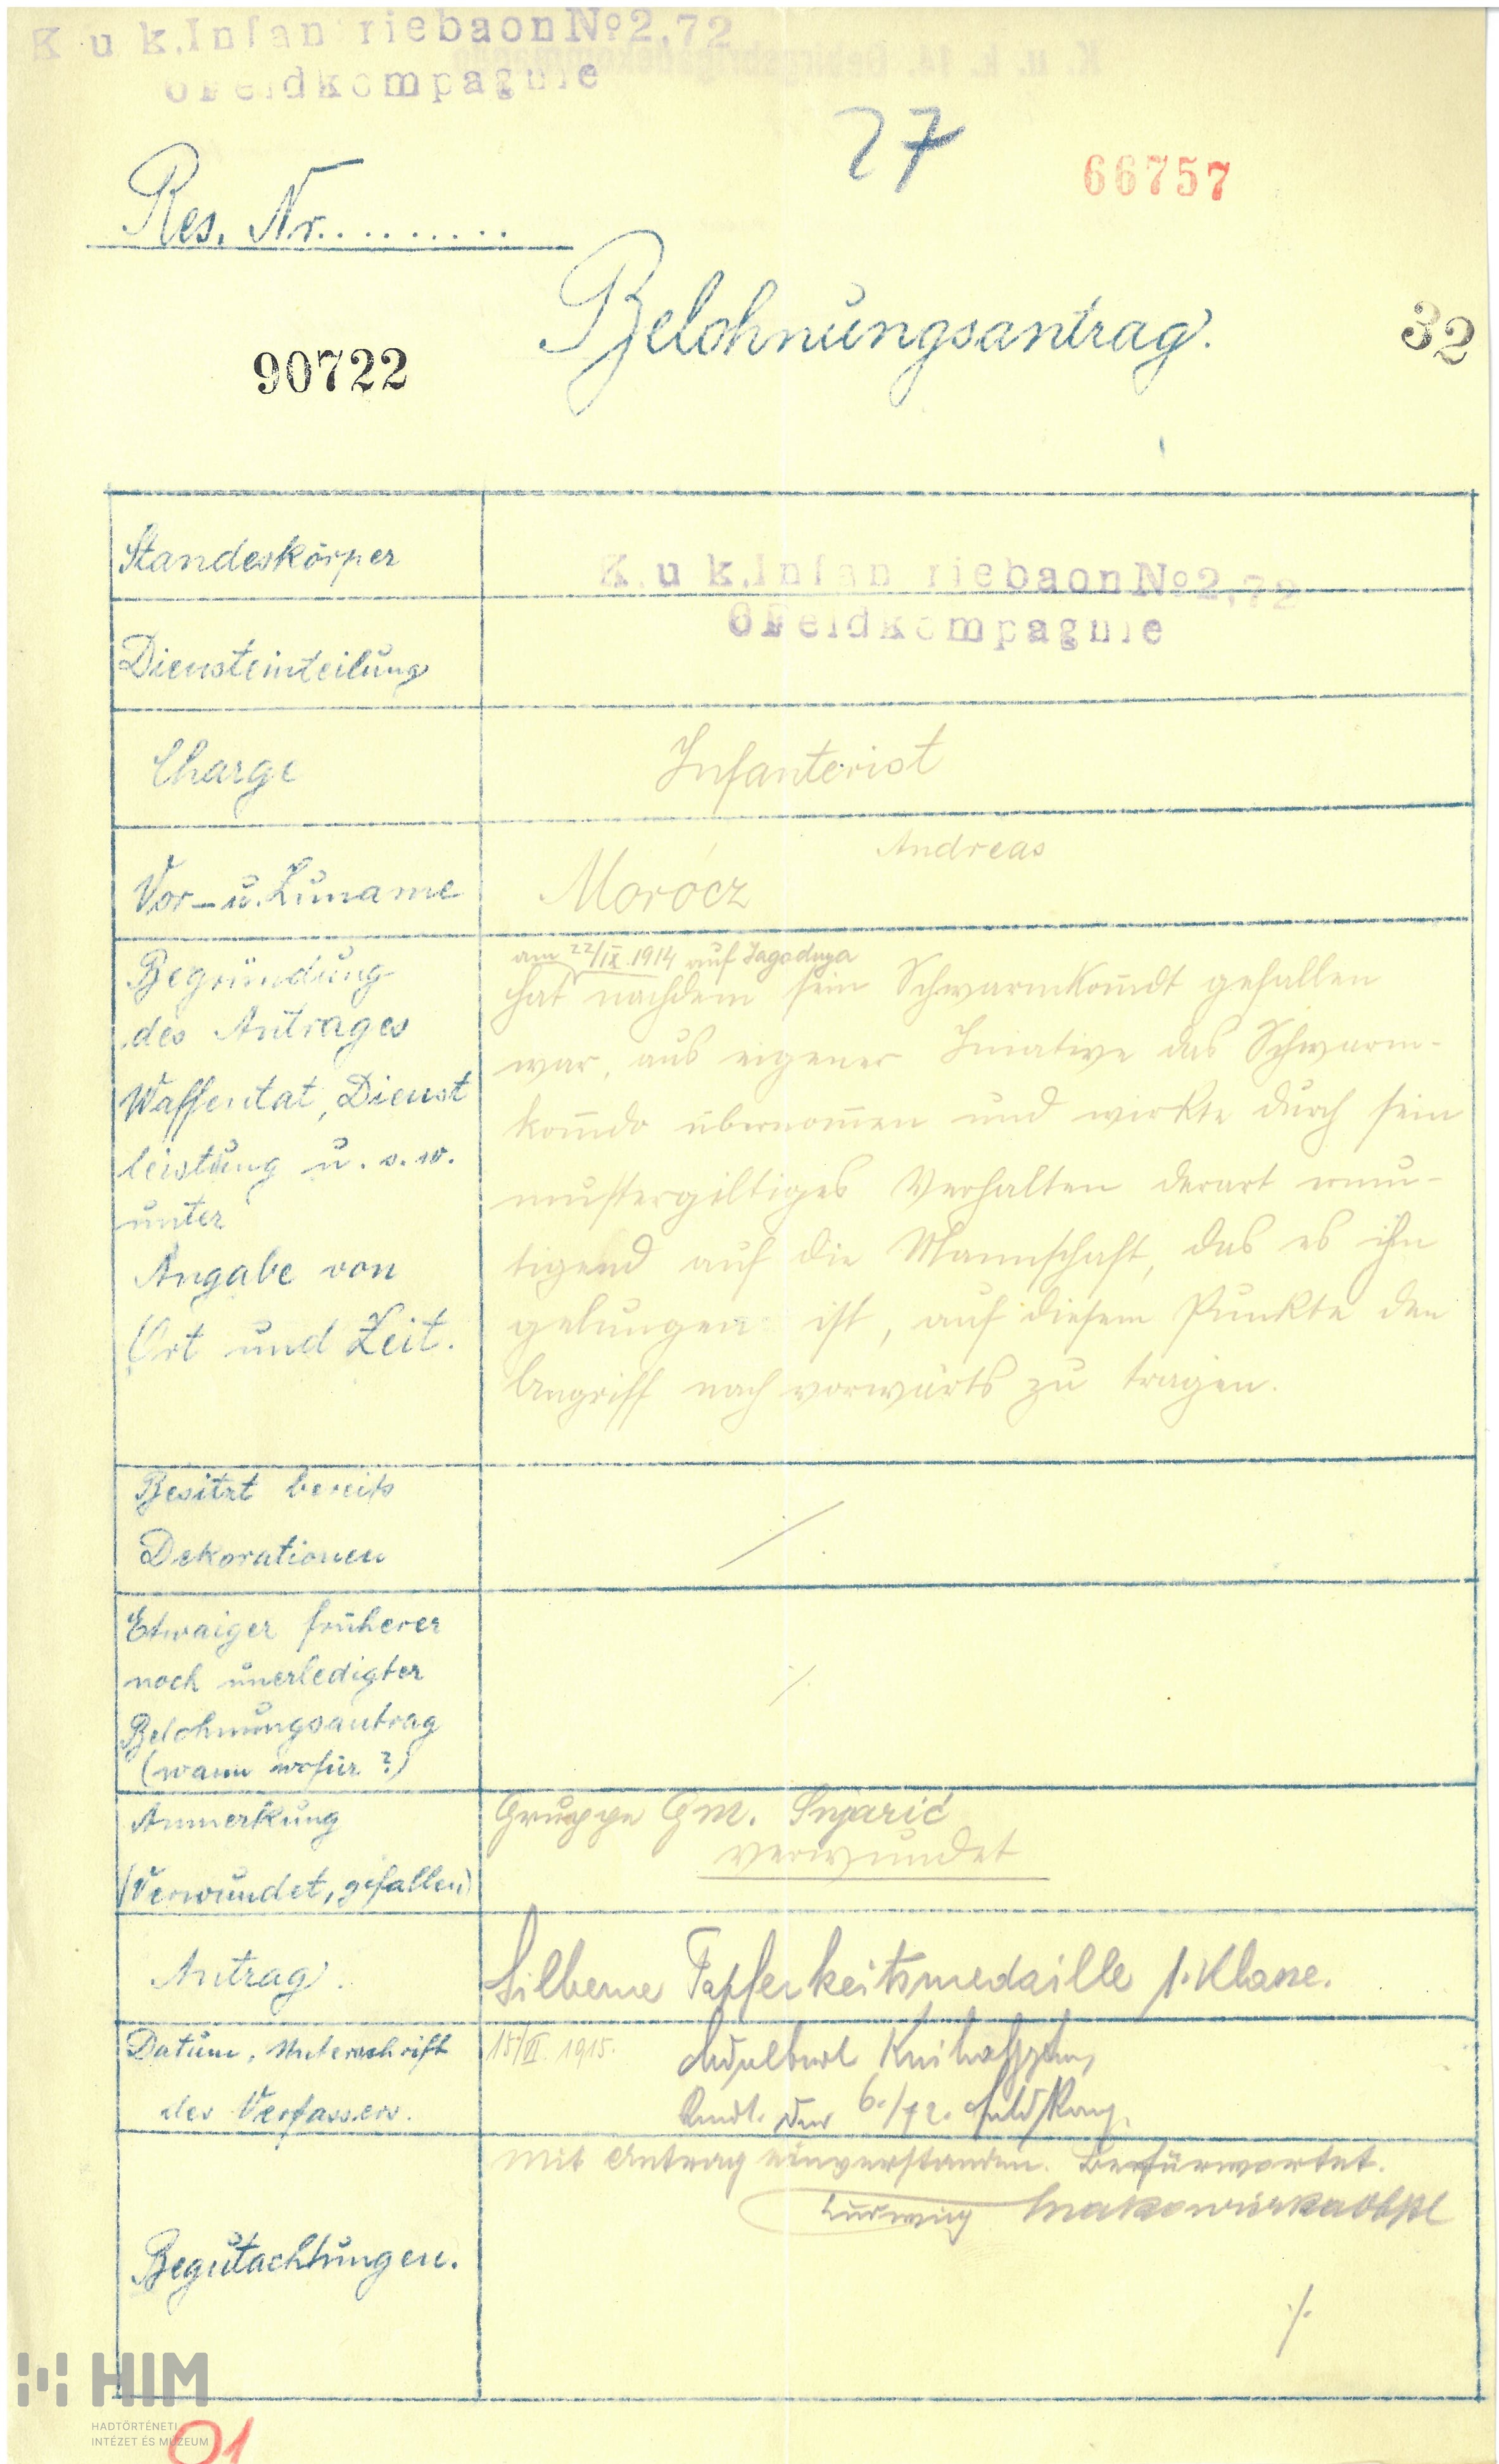 K u k. Infan riebaon No 2,72
6 Feldkompagnie
27
66757
Res. Nr..........
Belohnungsantrag.
90722
32
Standeskörper
K. u k. Infan riebaon No 2,72
6 Feldkompagnie
Diensteinteilung
Charge
Infanterist
Vor- u. Zuname
Andreas
Morócz
Begründung
des Antrages
Waffentat, Dienst
leistung u. s. w.
unter
Angabe von
Ort und Zeit.
am 22/IX. 1914 auf Jagodnya
hat nachdem sein Schwarmkom̄dt gefallen
war, aus eigener Iniative das Schwarm-
kom̄do übernom̄en und wirkte durch sein
mustergiltiges Verhalten derart ermu-
tigend auf die Mannschaft, das es ihn
gelungen ist, auf diesem Punkte den
Angriff nach vorwärts zu tragen.
Besitzt bereits
Dekorationen
Etwaiger früherer
noch unerledigter
Belohnungsantrag
(wann wofür ?)
Anmerkung
(Verwundet, gefallen)
Gruppe Gm. Snjarić
verwundet
Antrag.
Silberne Tapferkeitsmedaille 1. Klasse.
Datum, Unterschrift
des Verfassers.
1915.
Kmdt. der 6./72. Feld Komp.
Begutachtungen.
Mit Antrag einverstanden. Berfürwortet.
Ludwig
./.
HIM
HADTÖRTÉNETI
INTÉZET ÉS MÚZEUM
01